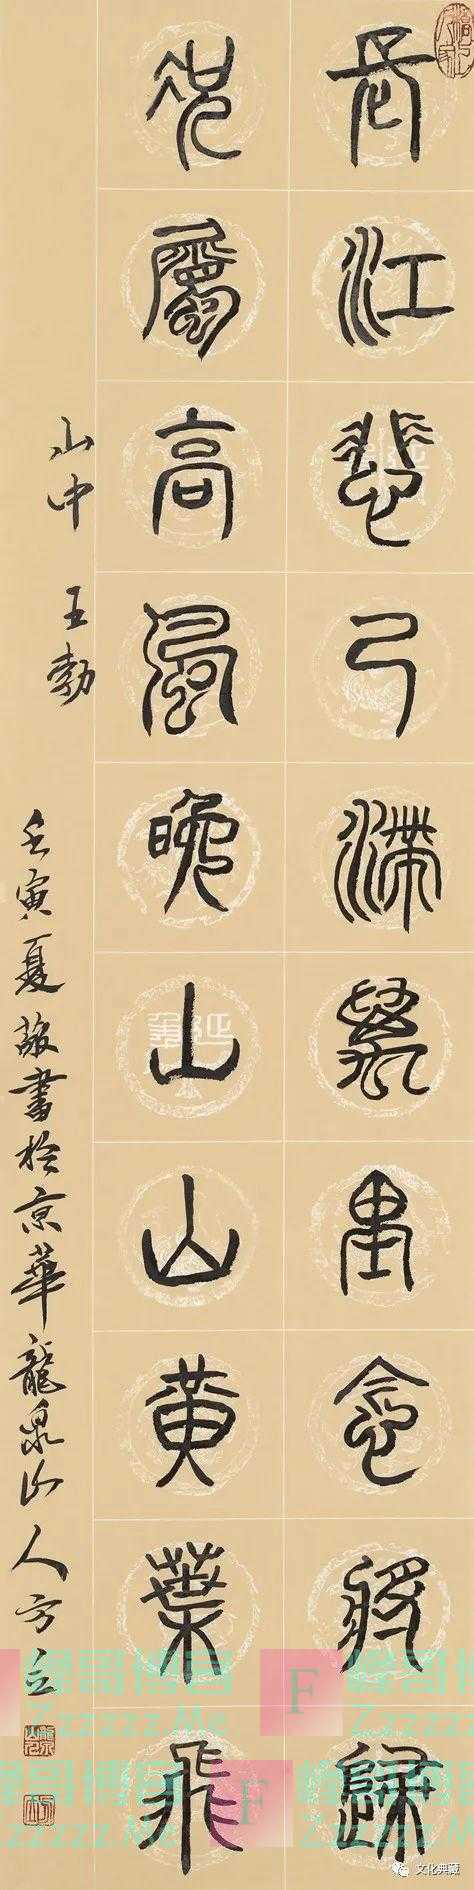 長江悲已滯萬里念將歸
況屬高風晚山山黃葉飛
山中 王勃
壬寅夏敬書於京華龍泉山人方立
F
Zzzzzz.Me
Zzzzzz.Me
F
Zzzzzz.Me
Zzzzzz.Me
文化典藏